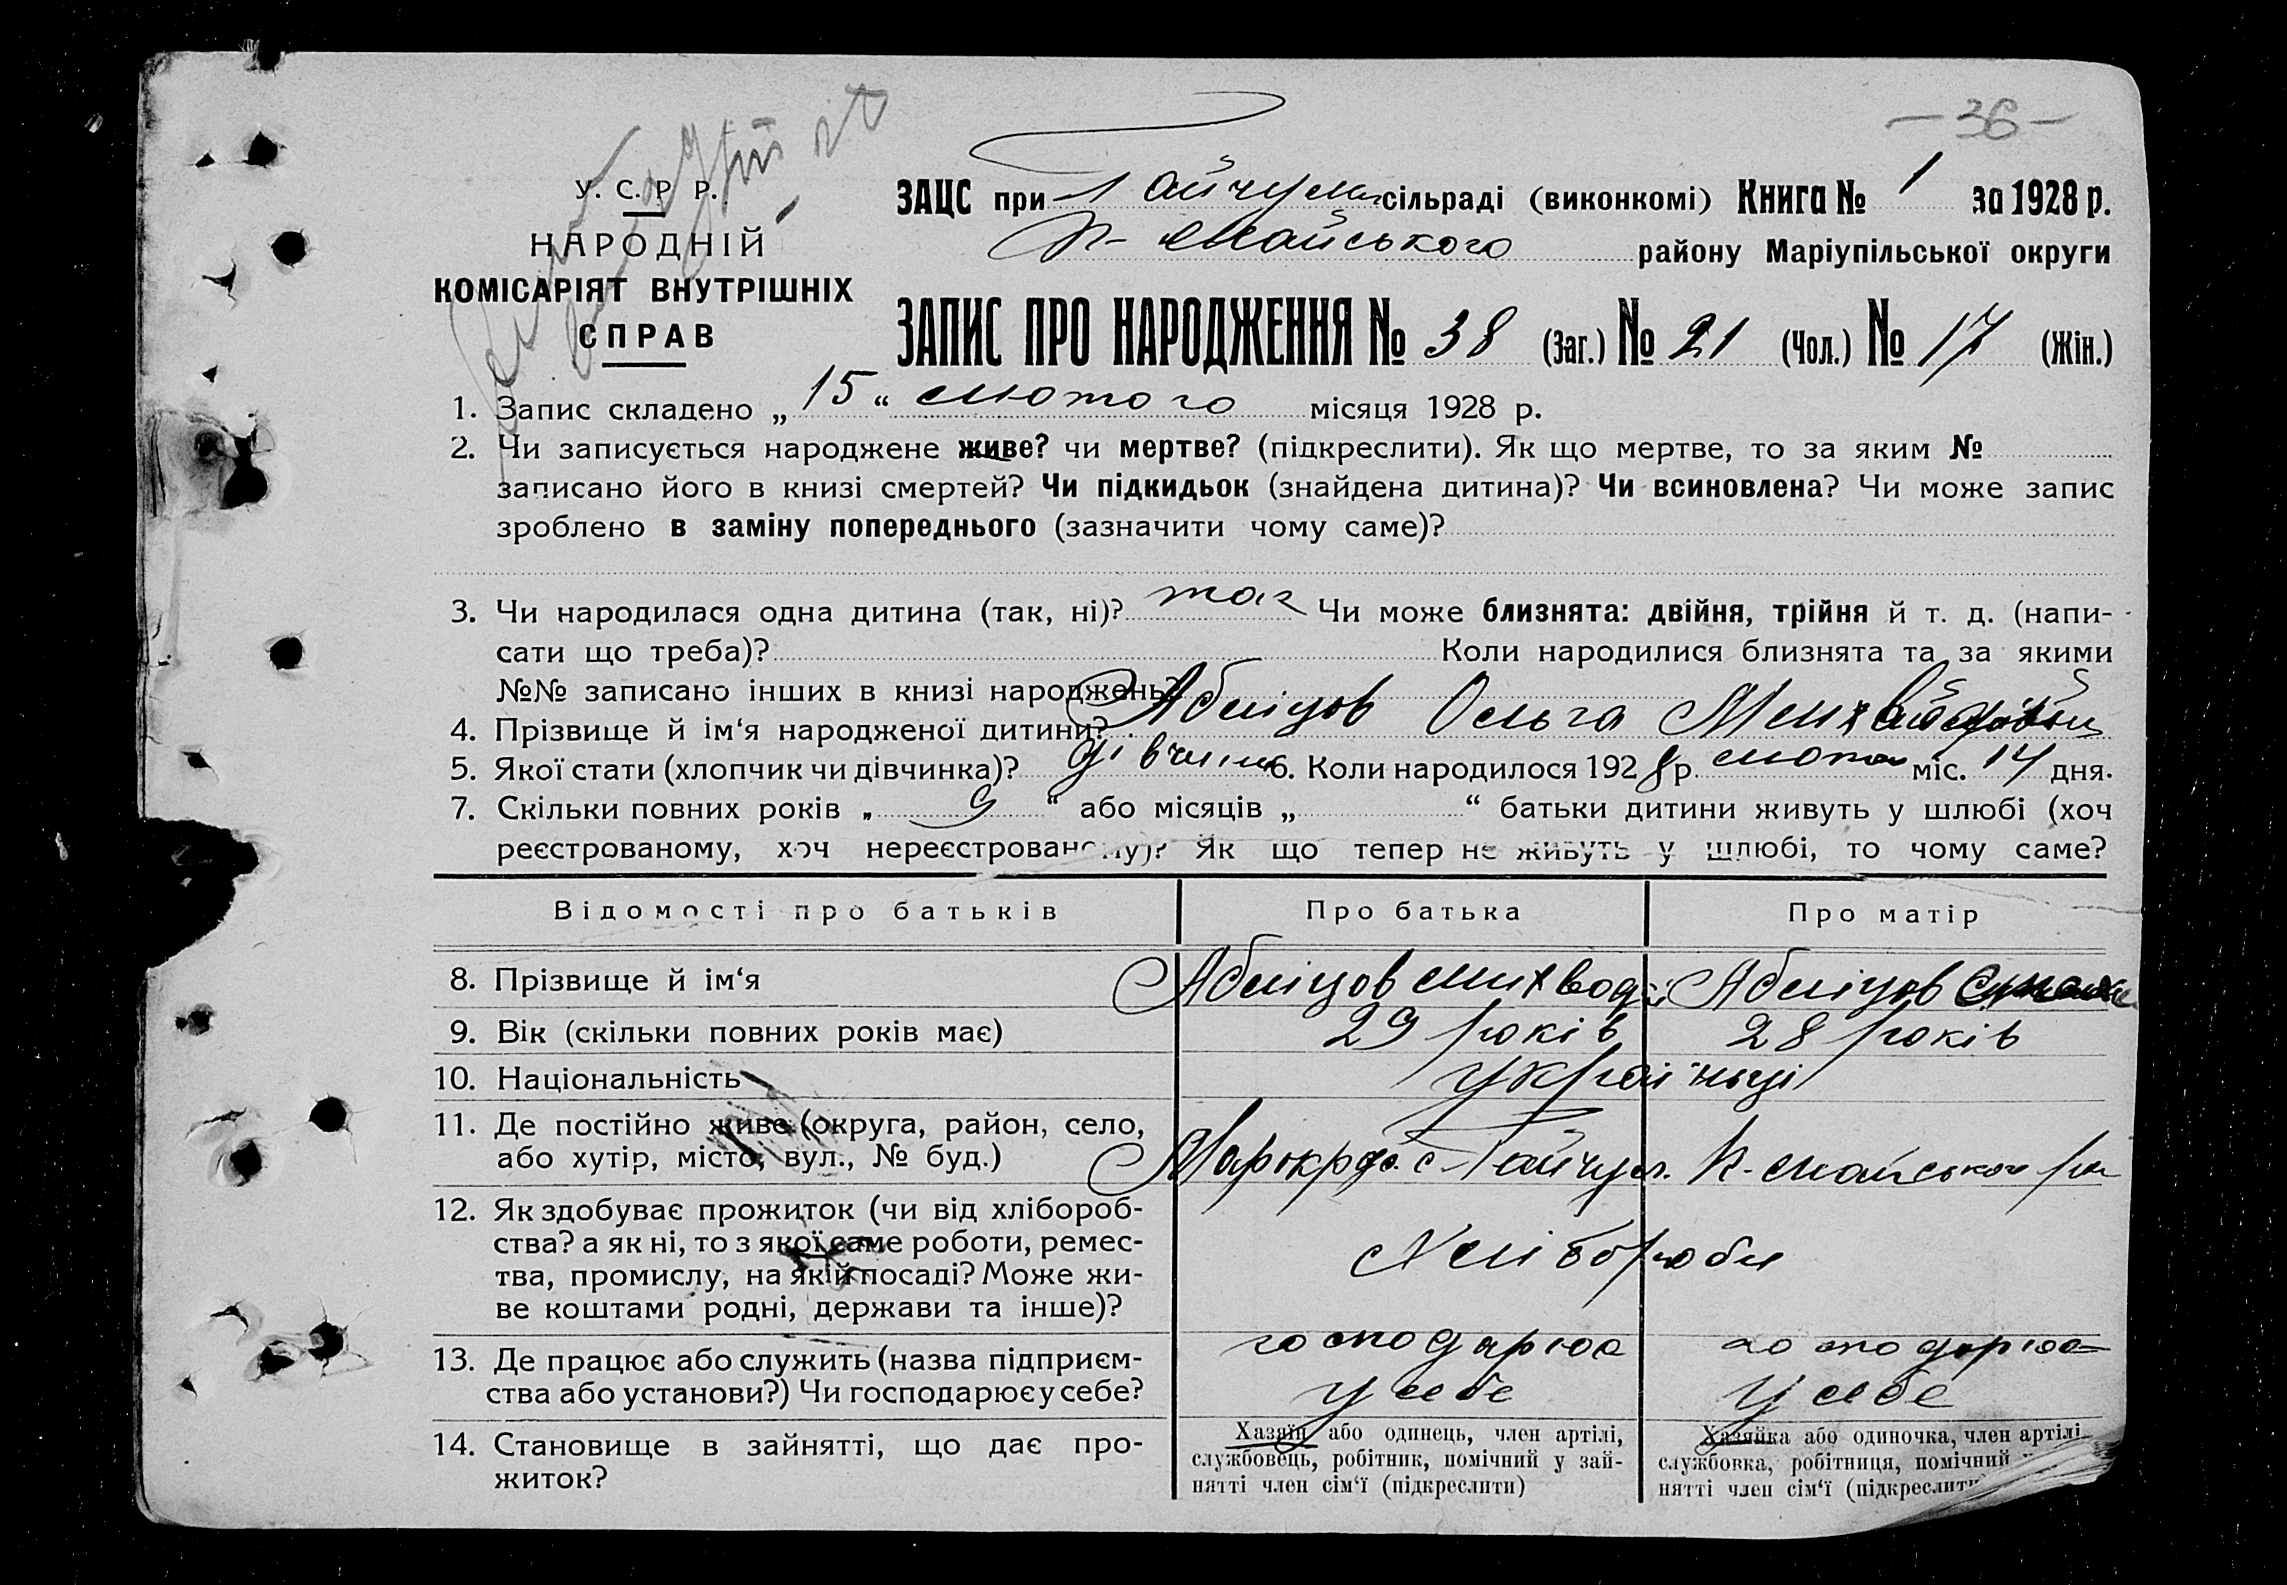 — 36 —
У. С. Р. Р.
НАРОДНІЙ
КОМІСАРІЯТ ВНУТРІШНІХ
СПРАВ
ЗАЦС при Гайчул. сільраді (виконкомі) Книга № 1 за 1928 р.
Н-Майського району Маріупільської округи
ЗАПИС ПРО НАРОДЖЕННЯ № 38 (Заг.) № 21 (Чол.) № 17 (Жін.)
1. Запис складено „15“ лютого місяця 1928 р.
2. Чи записується народжене живе? чи мертве? (підкреслити). Як що мертве, то за яким №
записано його в книзі смертей? Чи підкидьок (знайдена дитина)? Чи всиновлена? Чи може запис
зроблено в заміну попереднього (зазначити чому саме)?
3. Чи народилася одна дитина (так, ні)? так Чи може близнята: двійня, трійня й т. д. (напи-
сати що треба)? Коли народилися близнята та за якими
№№ записано інших в книзі народжень?
4. Прізвище й ім‘я народженої дитини? Абліцов Ольга
5. Якої стати (хлопчик чи дівчинка)? дівчина 6. Коли народилося 1928 р. лютого міс. 14 дня.
7. Скільки повних років „ 9 “ або місяців „ “ батьки дитини живуть у шлюбі (хоч
реєстрованому, хоч нереєстрованому)? Як що тепер не живуть у шлюбі, то чому саме?
Відомості про батьків Про батька Про матір
8. Прізвище й ім‘я Абліцов Абліцов
9. Вік (скільки повних років має) 29 років 28 років
10. Національність українці
11. Де постійно живе (округа, район, село, або хутір, місто, вул., № буд.)
с. Гайчул. Н-Майського р
12. Як здобуває прожиток (чи від хлібороб-
ства? а як ні, то з якої саме роботи, ремес-
тва, промислу, на якій посаді? Може жи-
ве коштами родні, держави та інше)?
Хлібороби
13. Де працює або служить (назва підприєм-
ства або установи?) Чи господарює у себе?
господарює у себе
господарює у себе
14. Становище в зайнятті, що дає про-
житок?
Хазяїн або одинець, член артілі,
службовець, робітник, помічний у зай-
нятті член сім‘ї (підкреслити)
Хазяйка або одиночка, член артілі
службовка, робітниця, помічний
нятті член сім‘ї (підкреслити